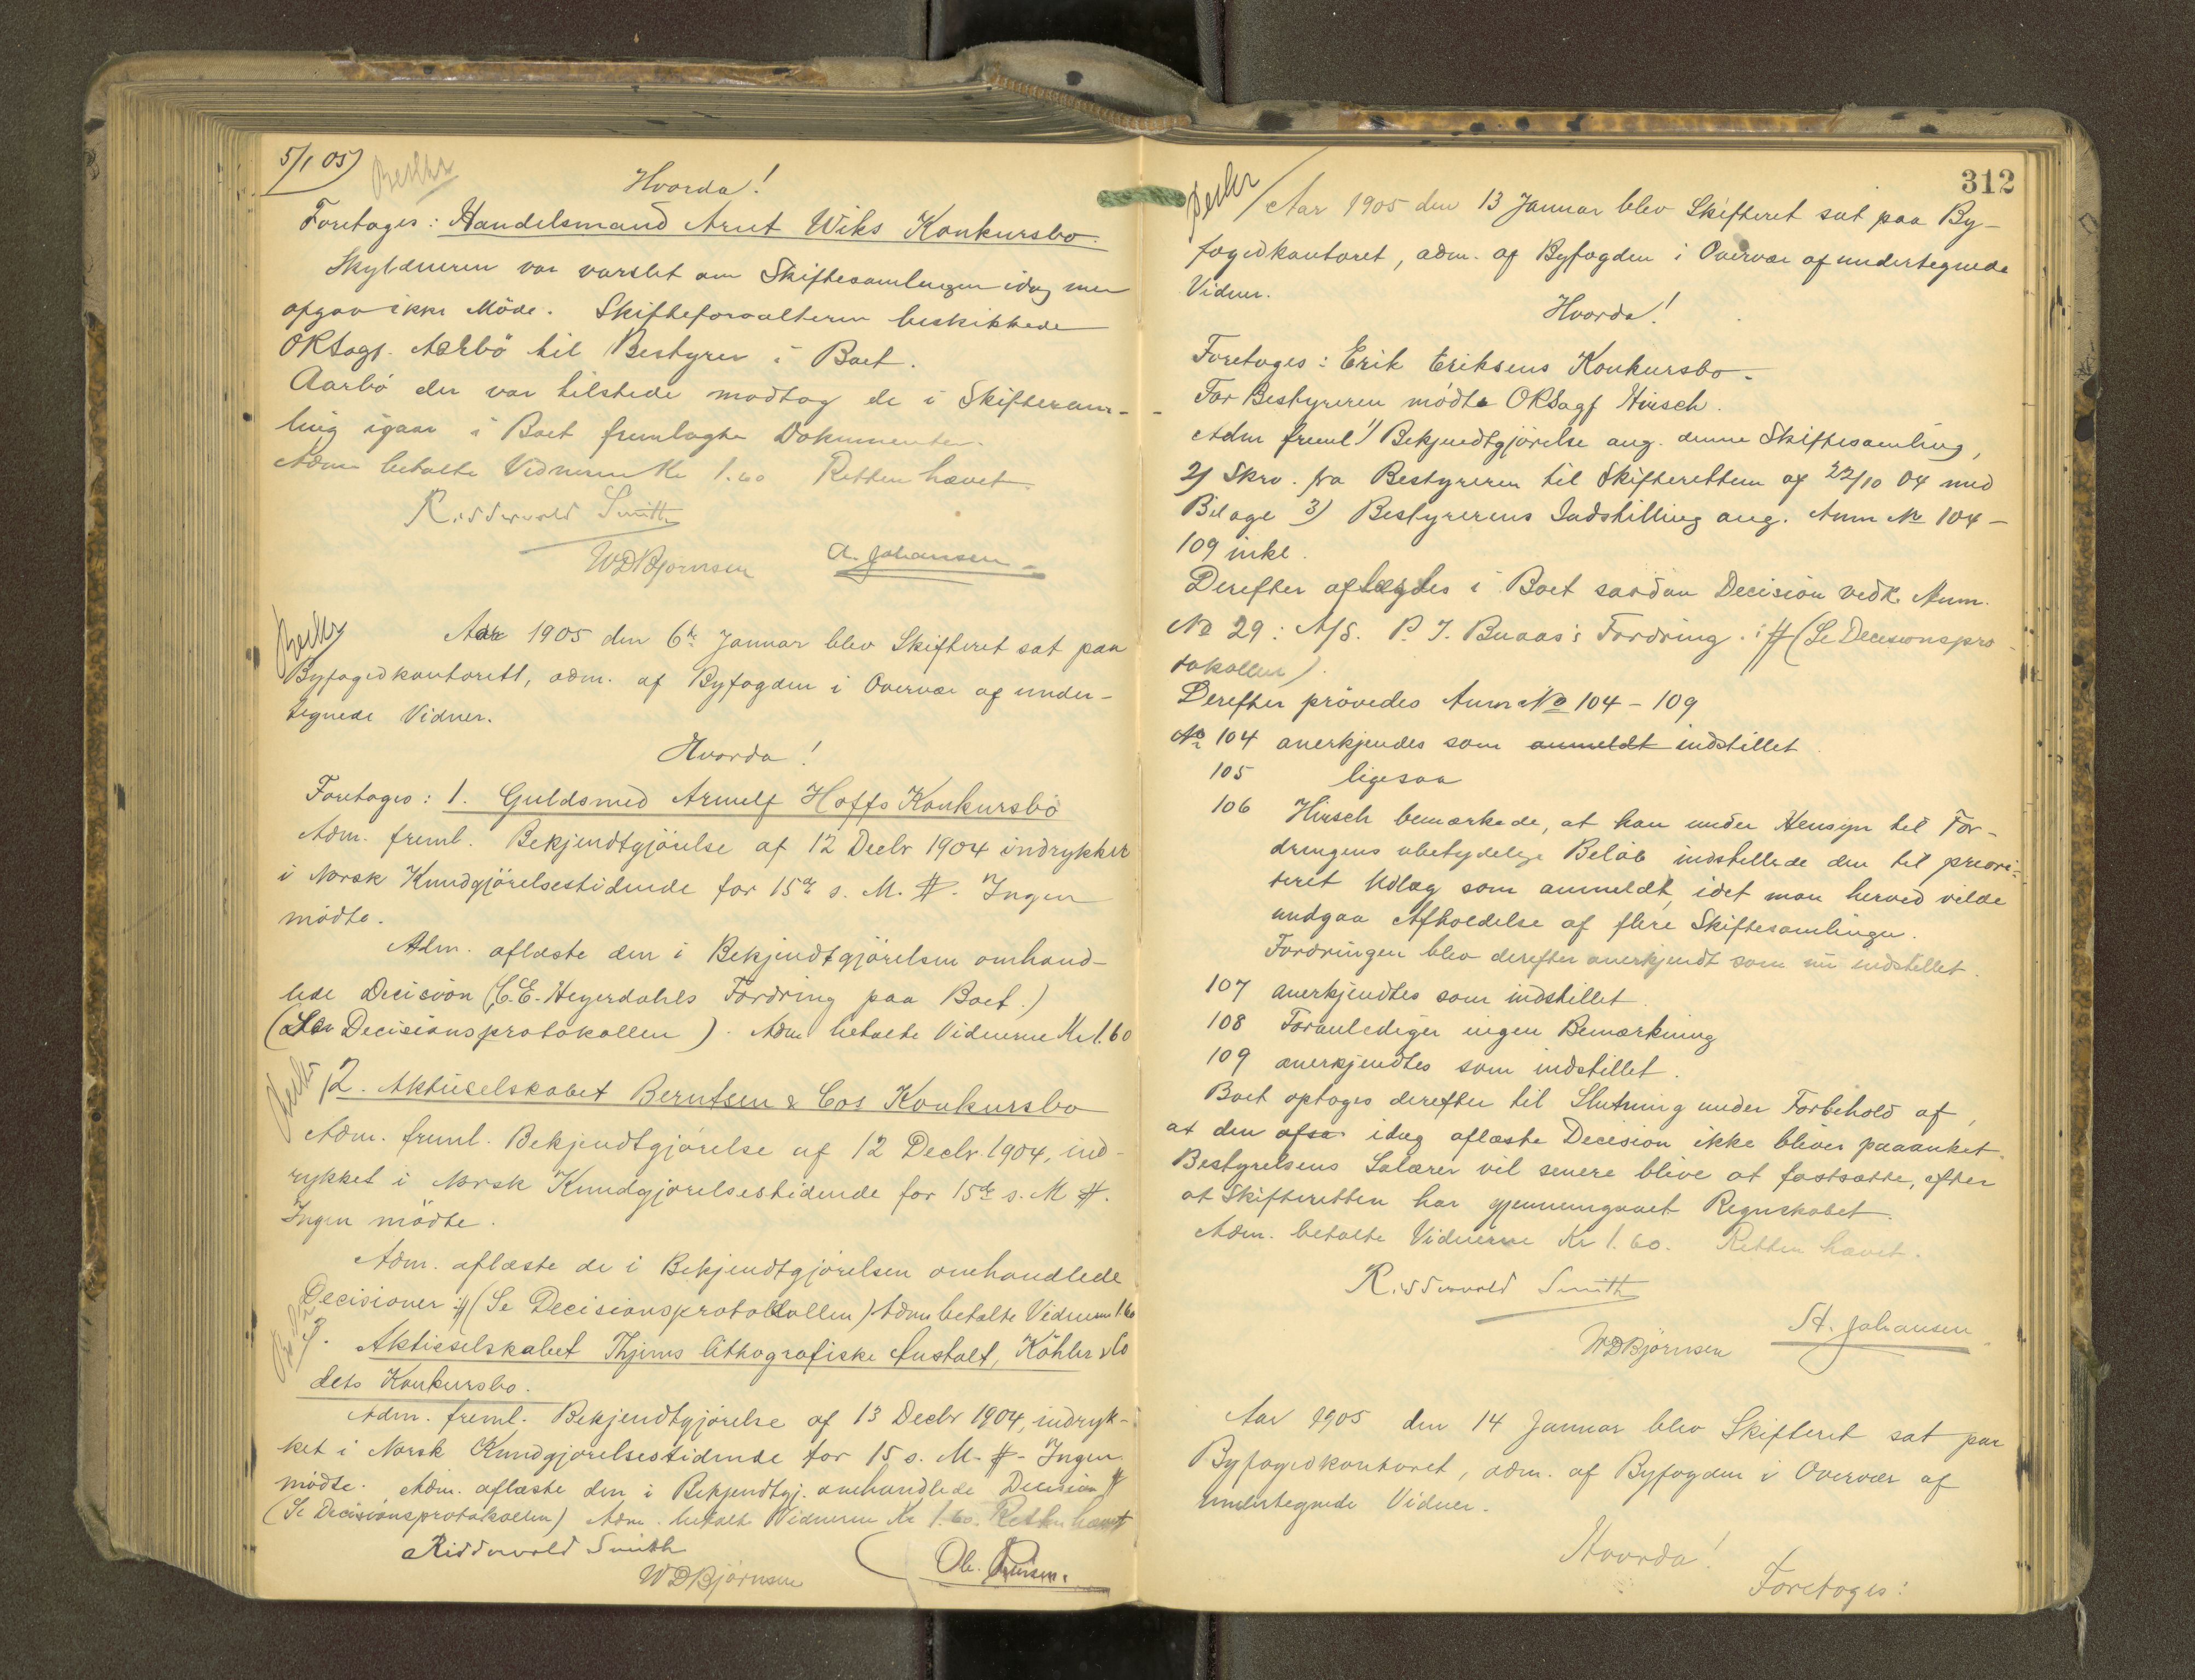 5/1 05)
Beskr
Hvorda!
Foretoges: Handelsmand Arnt Wiks Konkursbo.
Skyldneren var varslet om Skiftesamlingen idag men
afgav ikke Möde. Skifteforvalteren beskikkede
ORSagf. Aarbö til Bestyrer i Boet.
Aarbö der var tilstede modtog de i Skiftesam-
ling igaar i Boet fremlagte Dokumenter.
Adm betalte Vidnerne Kr 1.60 Retten hævet.
Ridderwold Smith
WDBjørnsen A. Johansen
Beskr
Aar 1905 den 6te Januar blev Skifteret sat paa
Byfogedkontoret, adm. af Byfogden i Overvær af under-
tegnede Vidner.
Hvorda!
Foretoges: 1. Guldsmed Arnulf Hoffs Konkursbo
Adm. freml. Bekjendtgjörelse af 12 Decbr 1904 indrykket
i Norsk Kundgjörelsestidende for 15de s. M. #. Ingen
mödte.
Adm. aflæste den i Bekjendtgjörelsen omhand-
lede Decision (C.E. Heyerdahls Fordring paa Boet.)
(Se Decisionsprotokollen). Adm betalte Vidnerne Kr 1.60
Beskr
2. Aktieselskabet Berntsen & Cos Konkursbo
Adm. freml. Bekjendtgjörelse af 12 Decbr. 1904, ind-
rykket i Norsk Kundgjörelsestidende for 15de s. M #.
Ingen mödte.
Adm. aflæste de i Bekjendtgjörelsen omhandlede
Decisioner :# (Se Decisionsprotokollen) Adm betalte Vidnerne 1.60
Beskr
3. Aktieselskabet Thjems lithografiske Anstalt, Köhler & Co
dets Konkursbo.
Adm. freml. Bekjendtgjörelse af 13 Decbr 1904, indryk-
ket i Norsk Kundgjörelsestidende for 15 s. M. # - Ingen
mödte. Adm. aflæste den i Bekjendtgj. omhandlede Decision #
(Se Decisionsprotokollen) Adm. betalte Vidnerne Kr 1.60. Retten hævet
Ridderwold Smith
WDBjörnsen Ole
312
Beskr
Aar 1905 den 13 Januar blev Skifteret sat paa By-
fogedkontoret, adm. af Byfogden i Overvær af undertegnede
Vidner.
Hvorda!
Foretoges: Erik Eriksens Konkursbo.
For Bestyreren mödte ORSagf Hirsch.
Adm freml 1) Bekjendtgjörelse ang. denne Skiftesamling,
2) Skrv. fra Bestyreren til Skifteretten af 22/10 04 med
Bilage 3) Bestyrerens Indstilling ang. Anm No 104 -
109 inkl.
Derefter aflagdes i Boet saadan Decision vedk. Anm.
No 29: A/S. P. I. Buaas's Fordring. :# (Se Decisionspro-
tokollen).
Derefter prövedes Anm No 104 - 109
No 104 anerkjendes som anmeldt indstillet
105 ligesaa
106 Hirsch bemærkede, at han under Hensyn til For-
dringens ubetydelige Belöb indstillede den til priori-
teret Udlæg som anmeldt, idet man herved vilde
undgaa Afholdelse af flere Skiftesamlinger.
Fordringen blev derefter anerkjendt som nu indstillet.
107 anerkjendtes som indstillet.
108 Foranlediger ingen Bemærkning
109 anerkjendtes som indstillet.
Boet optoges derefter til Slutning under Forbehold af,
at den afsa idag aflæste Decision ikke bliver paaanket.
Bestyrelsens Salærer vil senere blive at fastsætte, efter
at Skifteretten har gjennemgaaet Regnskabet.
Adm. betalte Vidnerne Kr 1.60. Retten hævet.
Ridderwold Smith
WDBjørnsen A. Johansen
Aar 1905 den 14 Januar blev Skifteret sat paa
Byfogedkontoret, adm. af Byfogden i Overvær af
undertegnede Vidner.
Hvorda!
Foretoges: